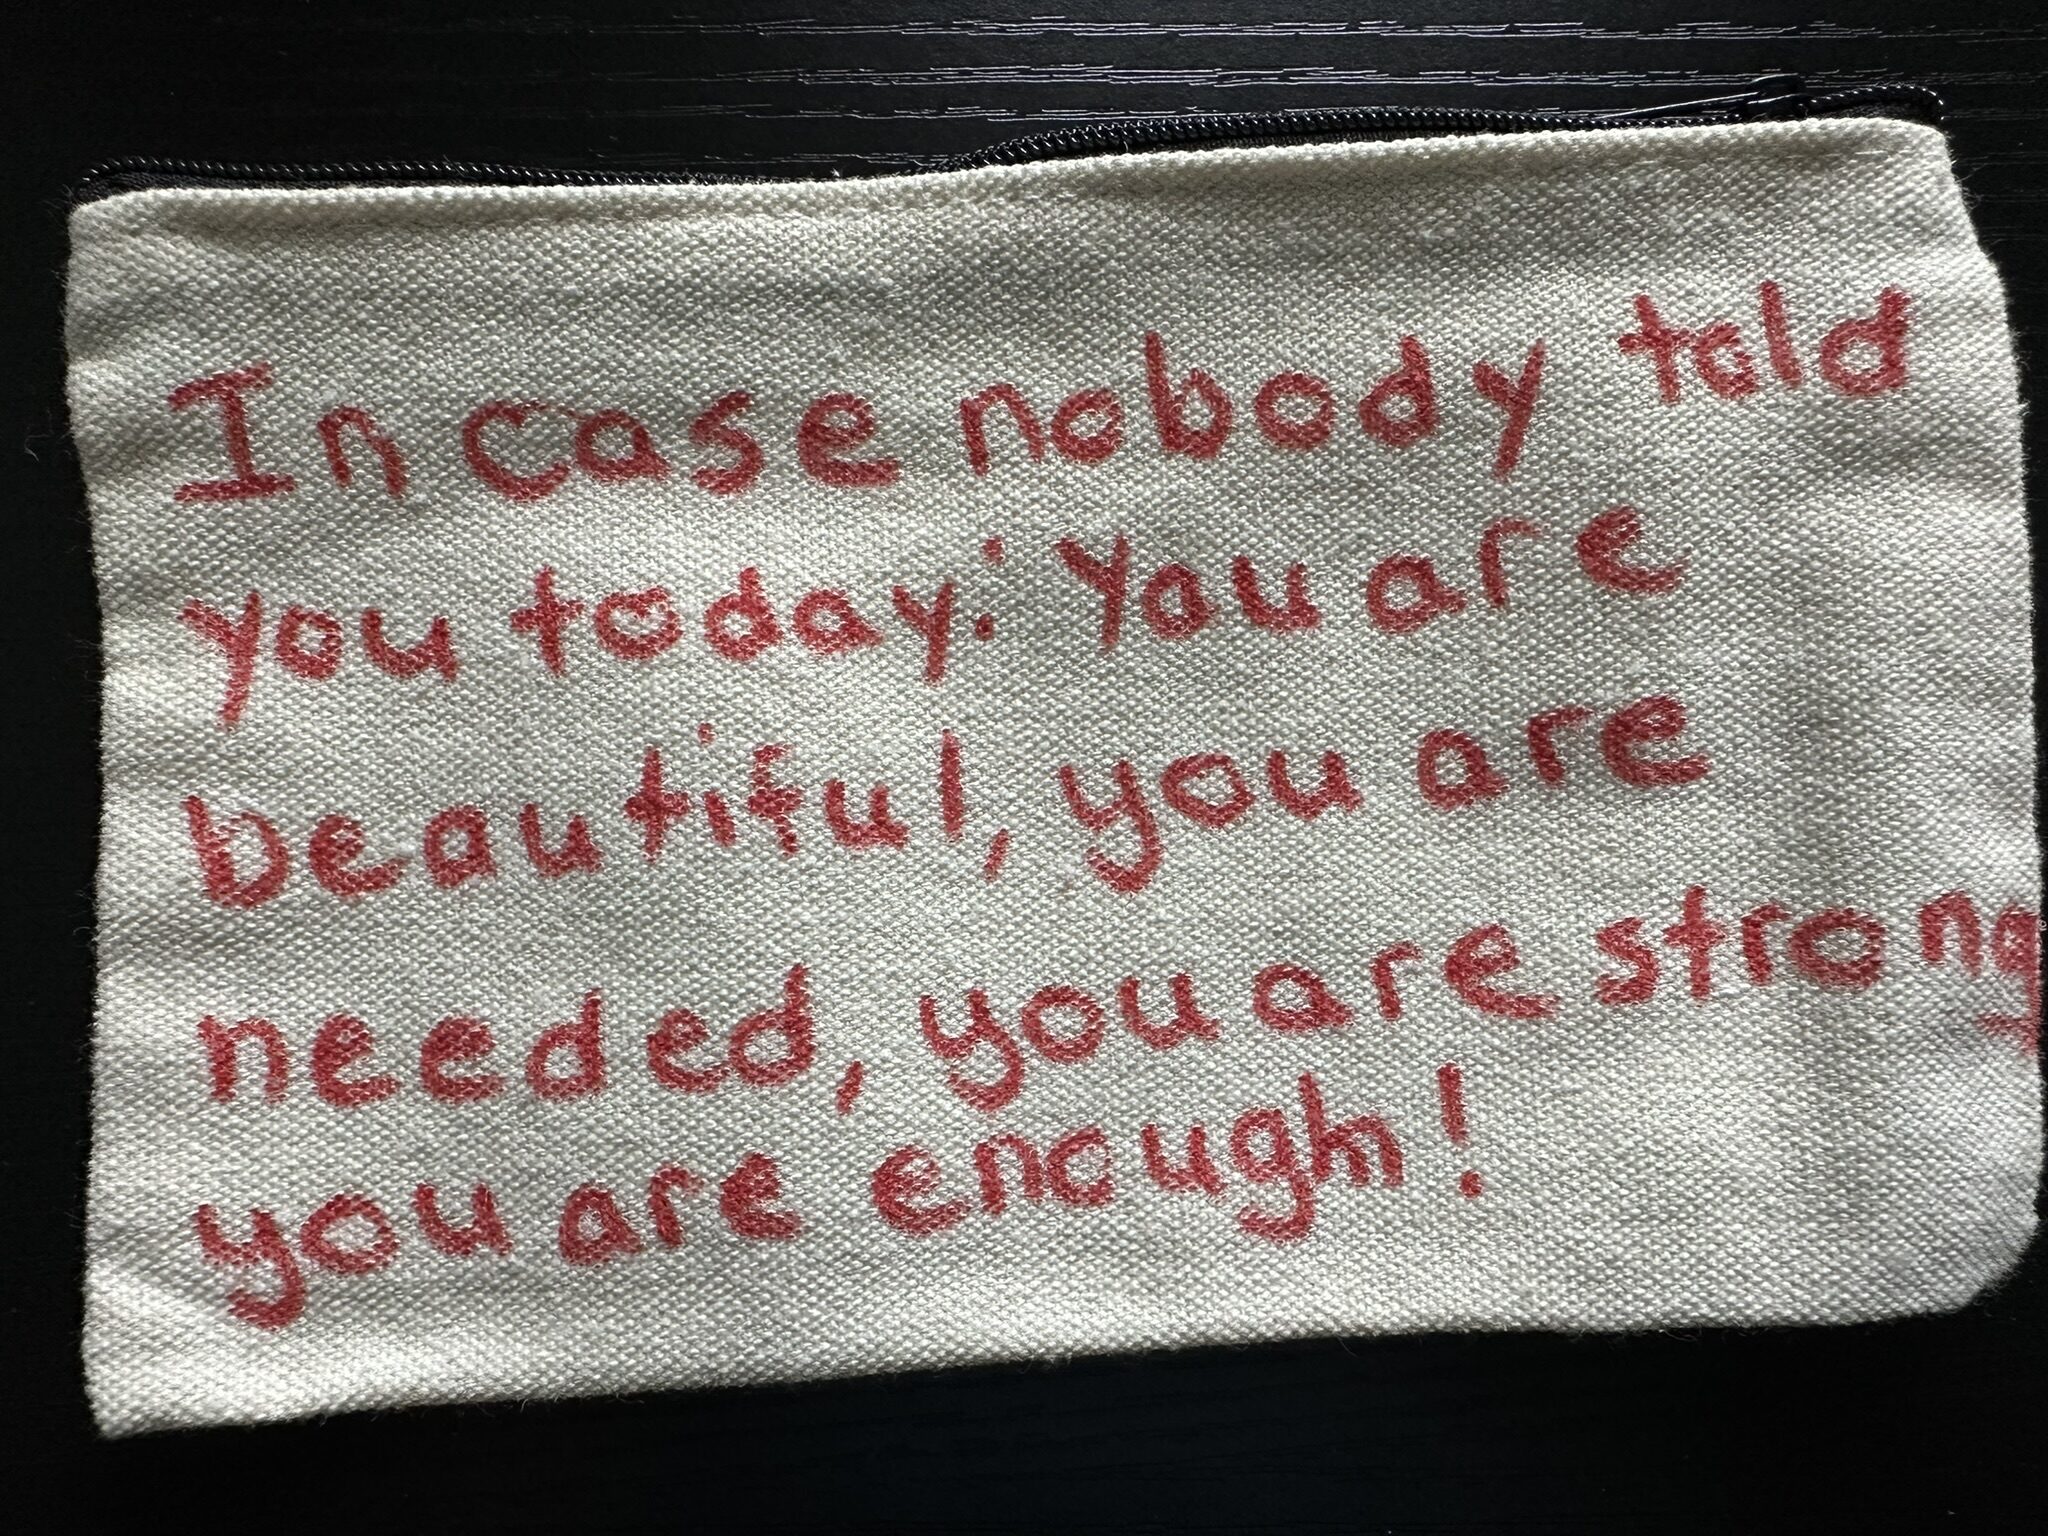 In case nobody told
you today: You are
beautiful, you are
needed, you are strong
you are enough!